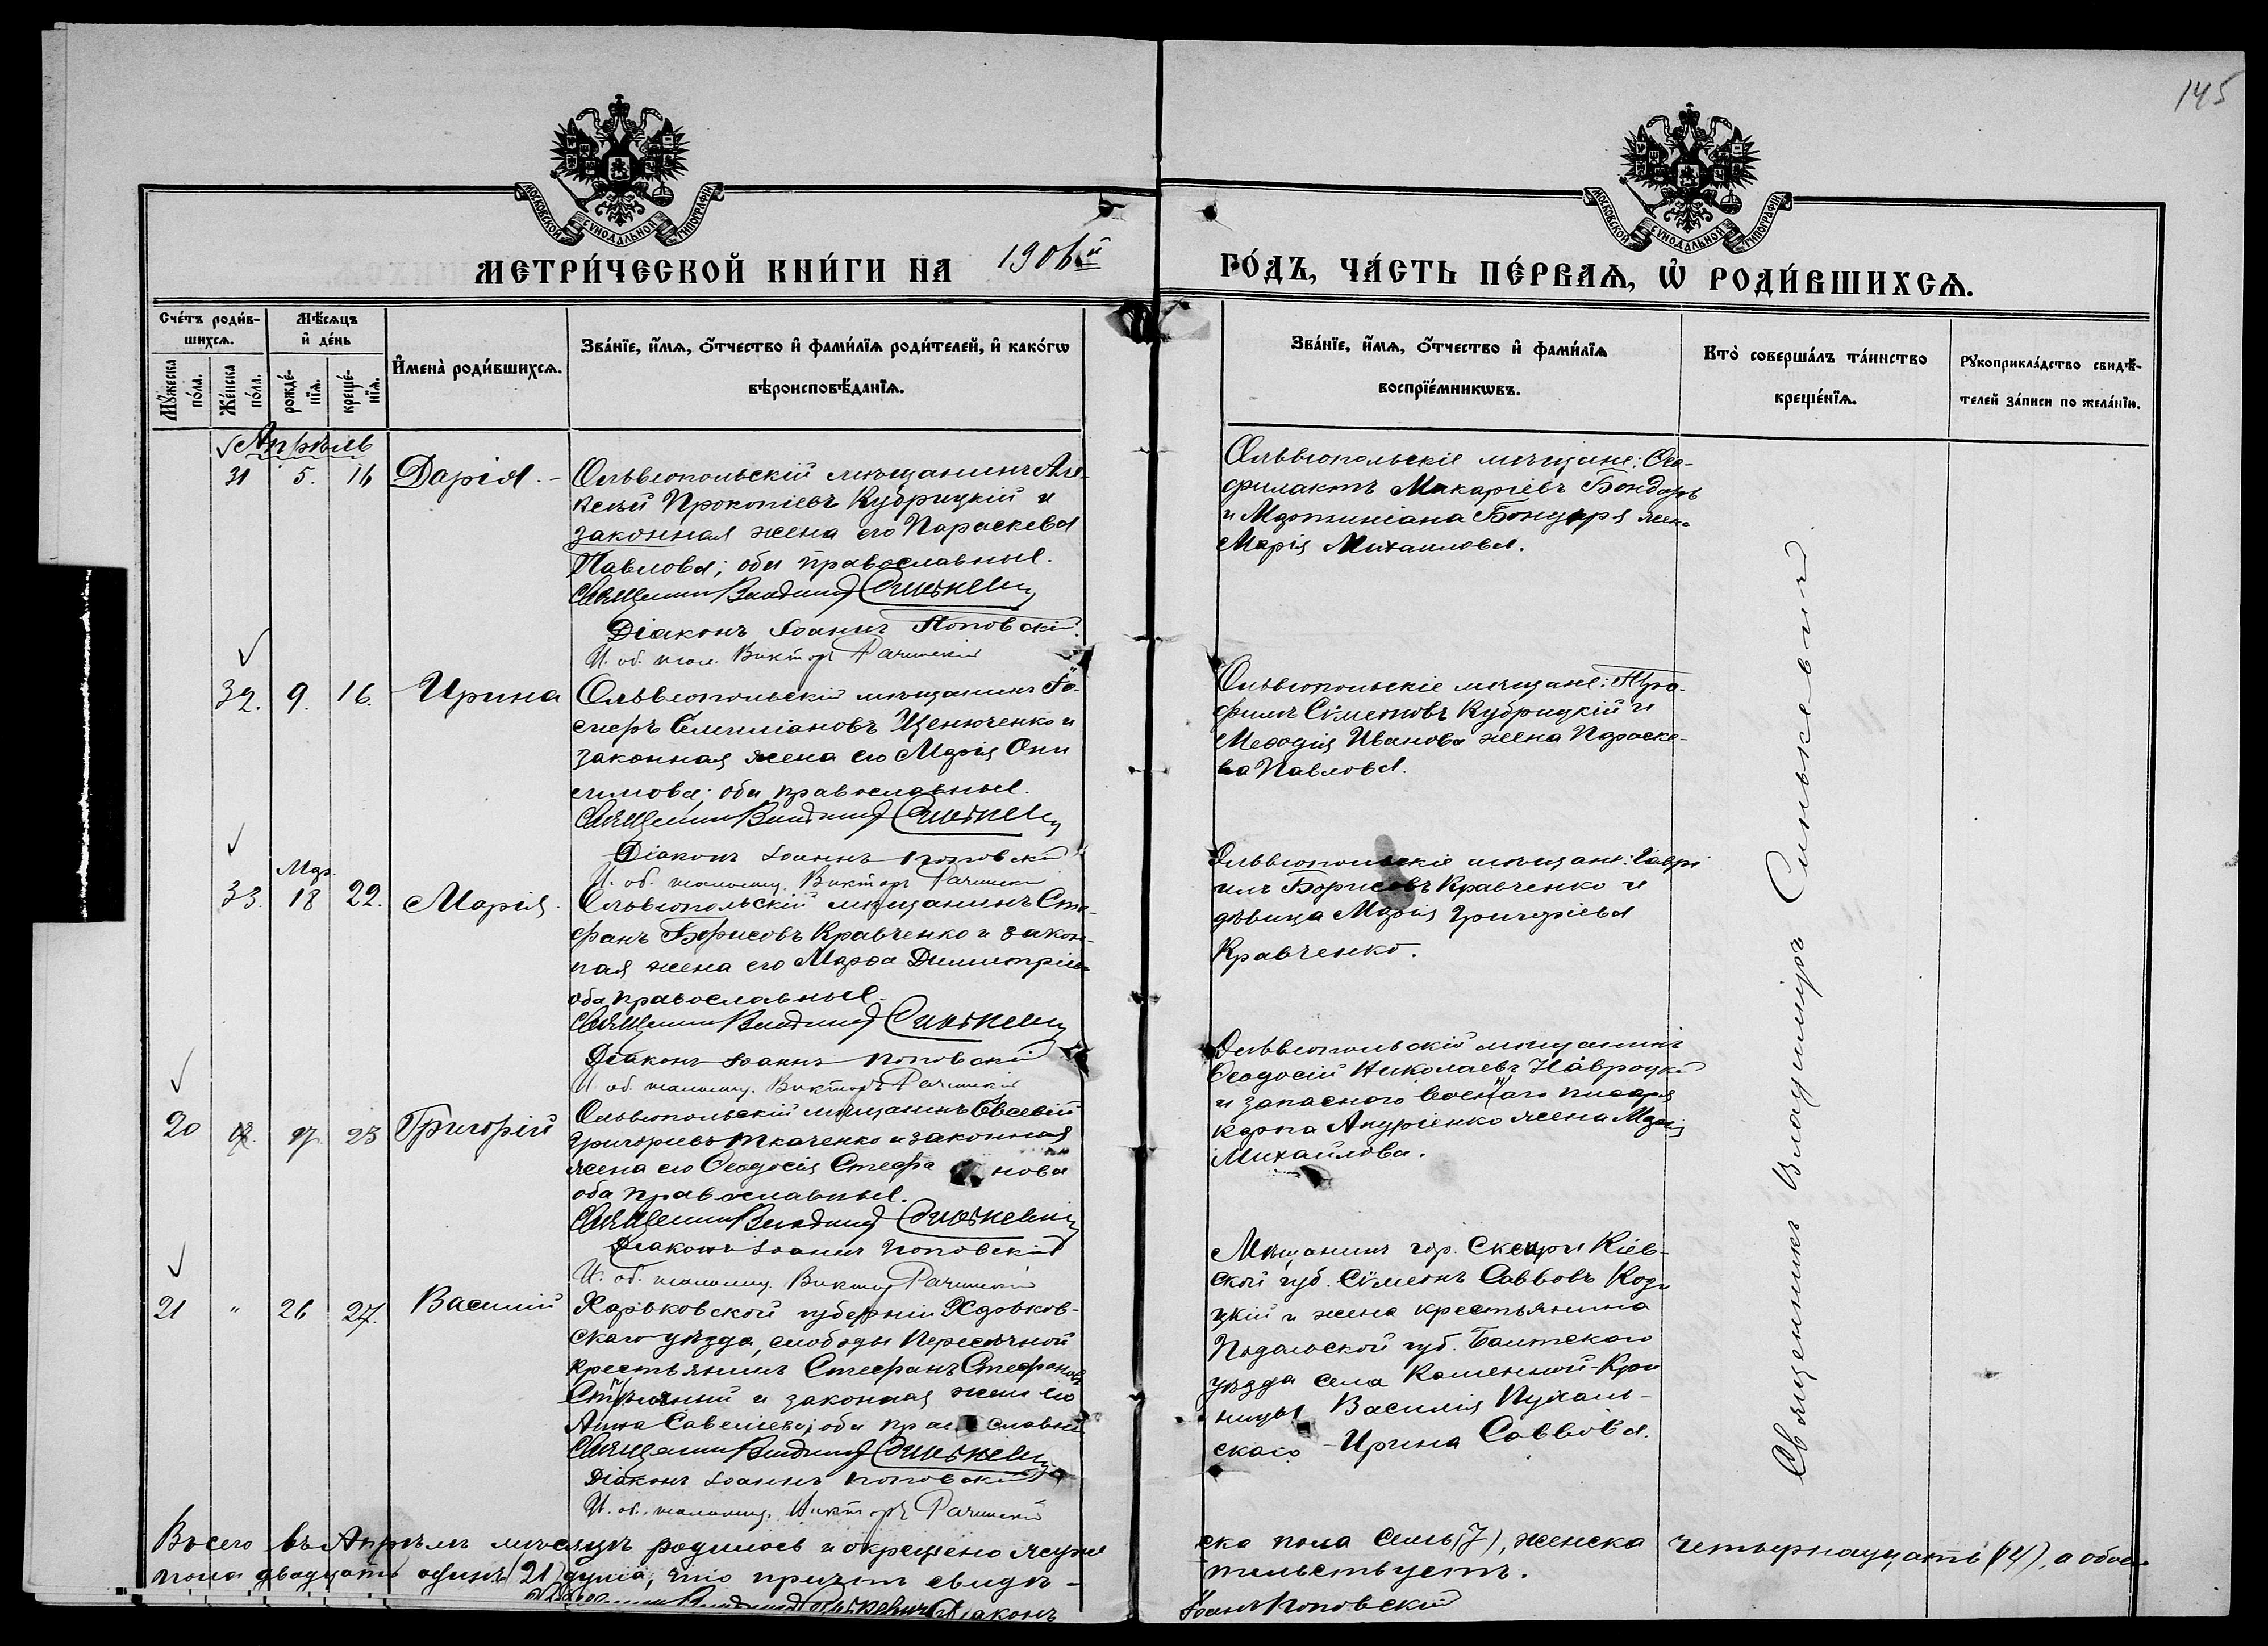 145
МОСКОВСКОЙ СѴНОДАЛЬНОЙ ТИПОГРАФІИ
МОСКОВСКОЙ СѴНОДАЛЬНОЙ ТИПОГРАФІИ
МЕТРИ́ЧЕСКОЙ КНИ́ГИ НА 1906й
ГО́ДЪ, ЧА́СТЬ ПЕ́РВАѦ, Ѡ҆ РОДИ́ВШИХСѦ.
Сче́тъ роди́в-
шихсѧ.
Мꙋ́жеска по́ла.
Же́нска по́ла.
Мѣ́сѧцъ
и҆ де́нь
рожде́-нїѧ.
креще́-нїѧ.
И҆мена̀ роди́вшихсѧ.
Зва́нїе, и҆́мѧ, ѻ҆́тчество и҆ фами́лїѧ роди́телей, и҆ како́гѡ
вѣроисповѣ́данїѧ.
Зва́нїе, и҆́мѧ, ѻ҆́тчество и҆ фами́лїѧ
воспрїе́мникѡвъ.
Кто̀ соверша́лъ та́инство
креще́нїѧ.
Рꙋкоприкла́дство свидѣ́-
телей за́писи по жела́нїю.
Апрѣль
31 5. 16 Дарія.
Ольвіопольскій мѣщанинъ Але-
ксѣй Прокопіевъ Кубрицкій и
законная жена его Параскева
Павлова; оба православные.
Священникъ Владимір Синькевич
Діаконъ Іоаннъ Поповскій.
И. об. псал. Викторъ Рачинскій
Ольвіопольскіе мѣщане: Ѳео-
филактъ Макаріевъ Бондарь
и Мартиніана Бондаря жена
Марія Михаилова.
32. 9. 16. Ирина
Ольвіопольскій мѣщанинъ Іо-
сифъ Емиліановъ Щенюченко и
законная жена его Марія Они
симова; оба православные.
Священникъ Владимір Синькевич
Діаконъ Іоаннъ Поповскій
И. об. псаломщ. Викторъ Рачинскій
Ольвіопольскіе мѣщане: Тро-
фимъ Сімеоновъ Кубрицкій и
Меѳодія Иванова жена Параске-
ва Павлова.
Мар.
33. 18 22. Марія.
Ольвіопольскій мѣщанинъ Сте-
фанъ Борисовъ Кравченко и закон-
ная жена его Марѳа Димитріева
оба православные.
Священникъ Владимір Синькевич
Діаконъ Іоаннъ Поповскій
И. об. псаломщ. Викторъ Рачинскій
Ольвіопольскіе мѣщане: Гаврі
илъ Борисовъ Кравченко и
дѣвица Марія Григоріева
Кравченко.
20 23 Григорій
Ольвіопольскій мѣщанинъ Евсевій
Григорьевъ Ткаченко и законная
жена его Ѳеодосія Стефанова
оба православные.
Священникъ Владимір Синькевич
Діаконъ Іоаннъ Поповскій
И. об. псаломщ. Викторъ Рачинскій
Ольвіопольскій мѣщанинъ
Ѳеодосій Николаевъ Навроцкій
и запаснаго военнаго писаря
Карпа жена Марія
Михайлова.
21 " 26 27. Василій
Харьковской губерніи Харьков-
скаго уѣзда, слободы Пересѣчной
крестьянинъ Стефанъ Стефановъ
и законная жена его
Анна Савеліева; оба православные
Священникъ Владимір Синькевич
Діаконъ Іоаннъ Поповскій
И. об. псаломщ. Викторъ Рачинскій
Мѣщанинъ гор. Сквиры Кіев-
ской губ. Сімеонъ Саввовъ
и жена крестьянина
Подольской губ. Балтскаго
уѣзда села Каменной-Кри
ницы Василія Пухаль-
скаго Ирина Саввова.
Священникъ Владиміръ Синькевичъ
Всего въ Апрѣлѣ мѣсяцѣ родилось и окрещено муже
ска пола семь (7), женска четырнадцать (14), а обоего
пола двадцать одинъ (21) душа, что причтъ свидѣ-
тельствуетъ.
Священникъ Владимір Синькевичъ Діаконъ
Іоаннъ Поповскій